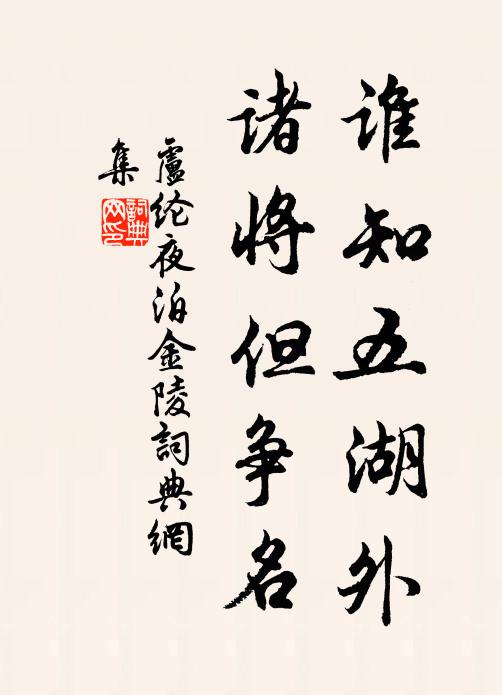 谁知五湖外
诸将但争名
盧纶夜泊金陵詞典網
集
詞典网印